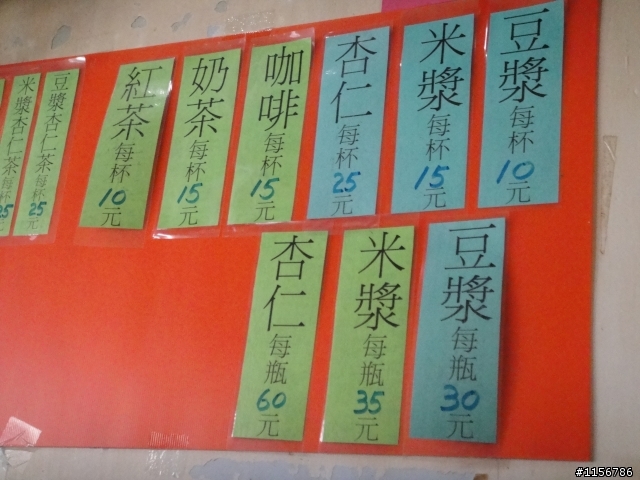 豆漿每杯10元
米漿每杯15元
杏仁每杯25元
咖啡每杯15元
奶茶每杯15元
紅茶每杯10元
豆漿杏仁茶每杯25元
米漿杏仁茶每杯25元
豆漿每瓶30元
米漿每瓶35元
杏仁每瓶60元
#1156786